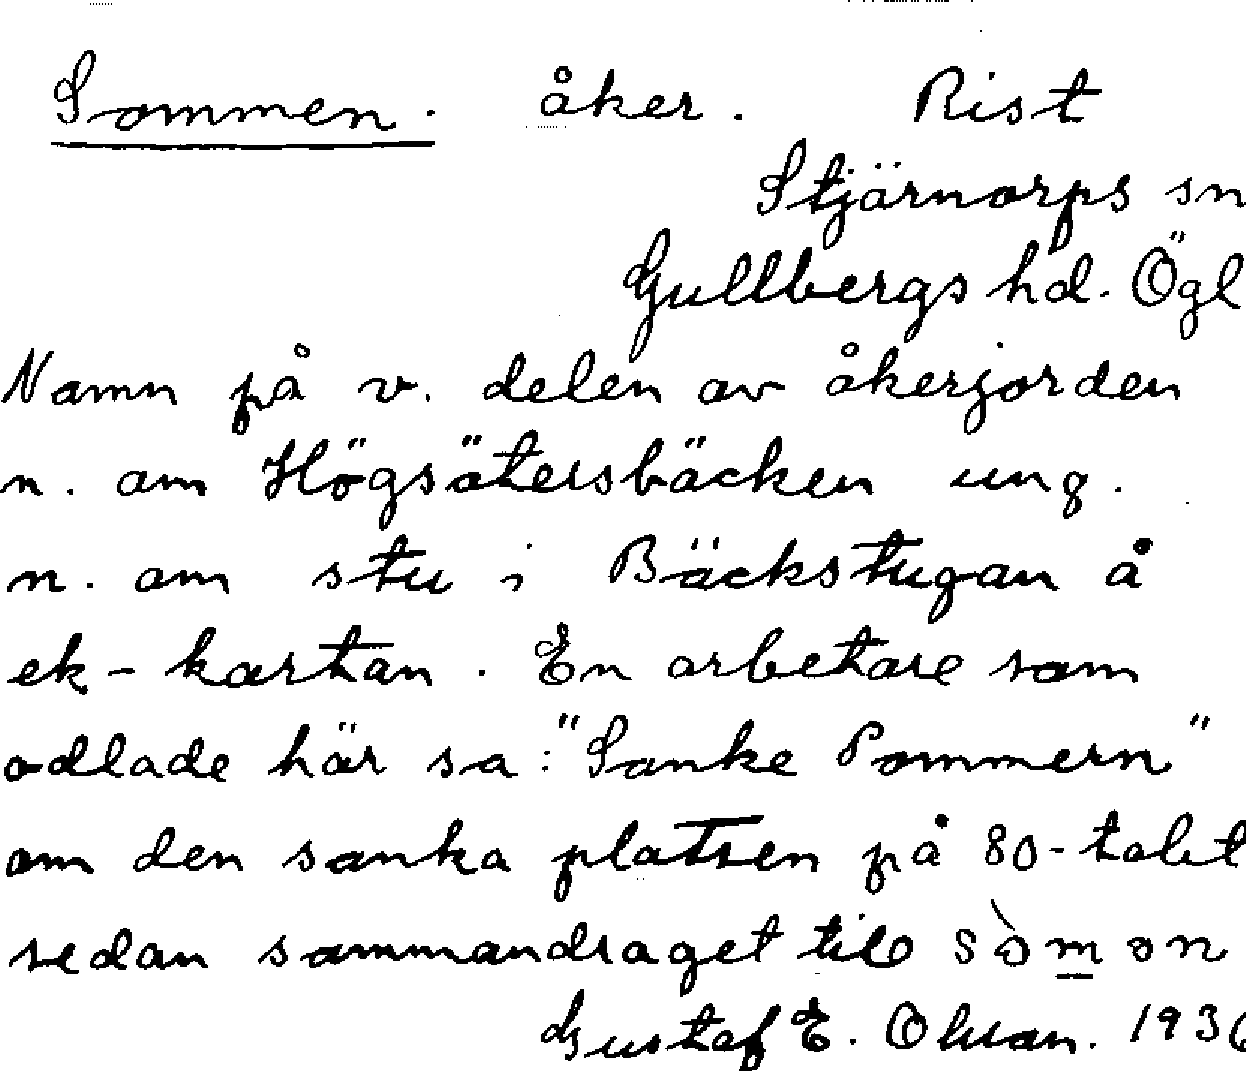 Sommen. åker. Rist
Stjärnorps sn
Gullbergs hd. Ögl
Namn på v. delen av åkerjorden
n. om Högsätersbäcken ung.
n. om stu i Bäckstugan å
ek-kartan. En arbetare som
odlade här sa: "Sanke Pommern"
om den sanka platsen på 80-talet
sedan sammandraget till sòmon
Gustaf E. Olsson. 1936